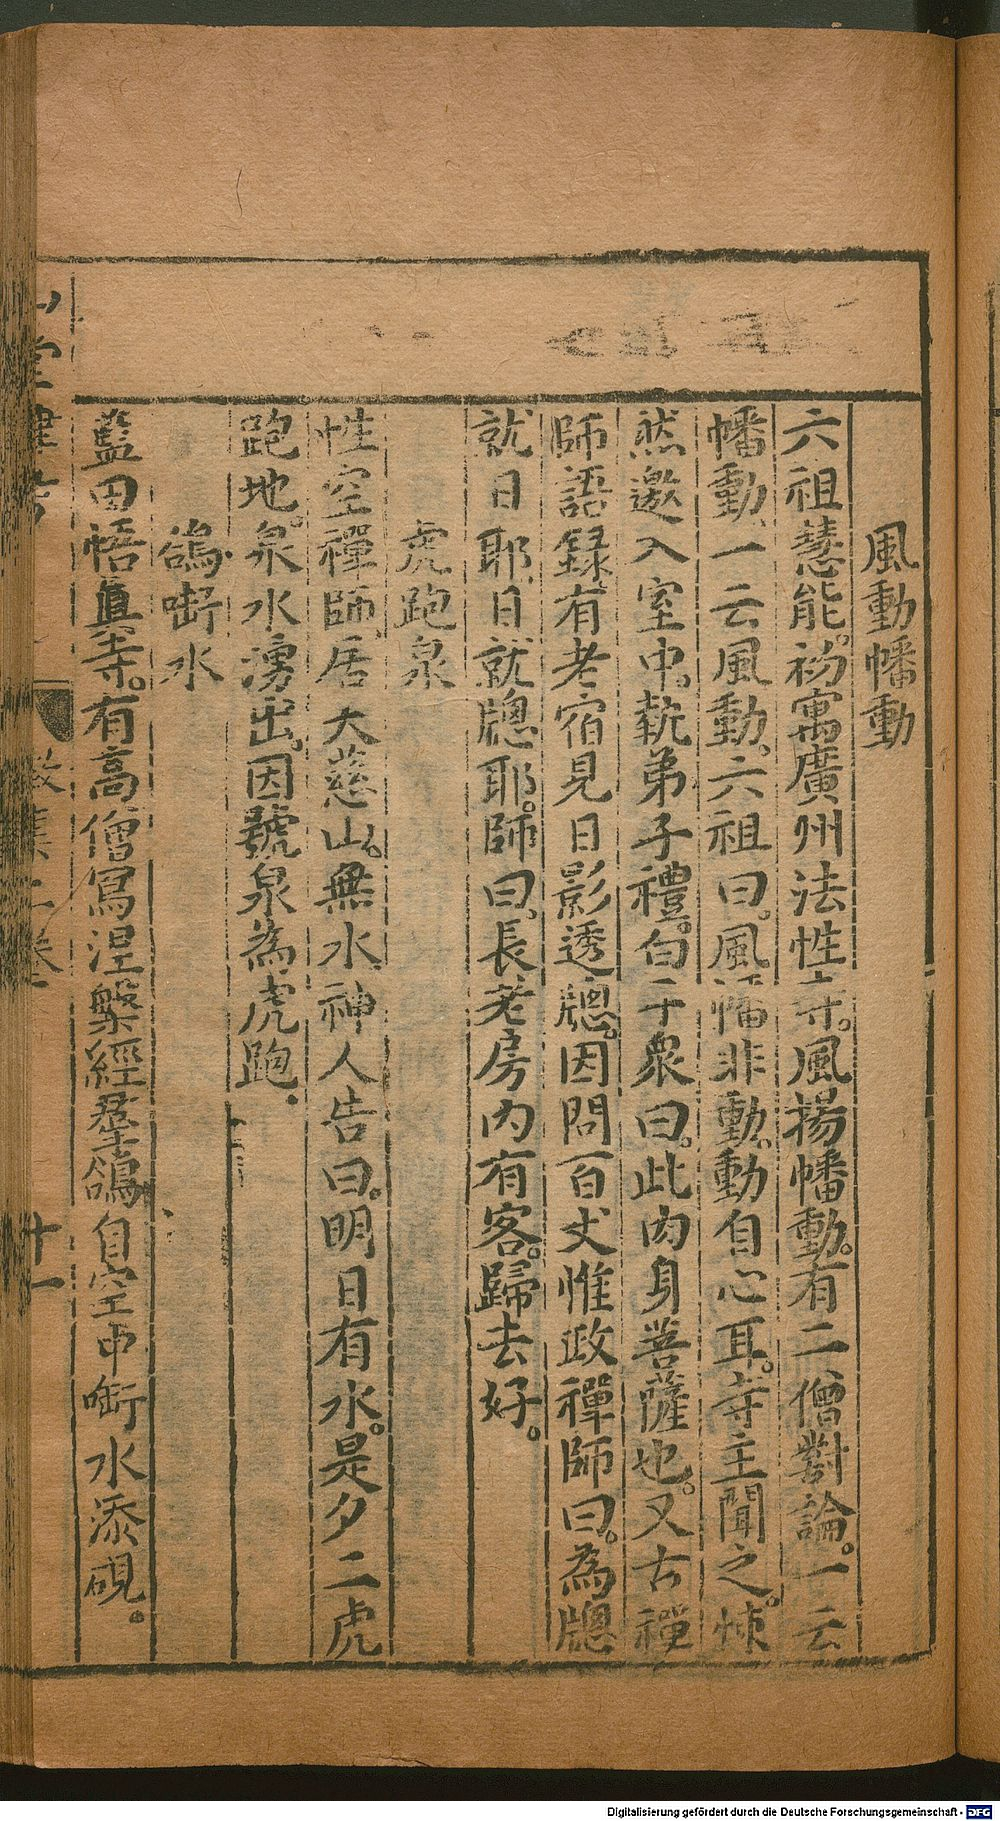 風動幡動
六祖慧能。初寓廣州法性寺。風揚幡動。有二僧對論。一云
幡動、一云風動。六祖曰。風幡非動。動自心耳。寺主聞之。悚
然邀入室中。執弟子禮。白于衆曰。此肉身菩薩也。又古禪
師語録。有老宿見日影透牕。因問百丈惟政禪師曰。為牕
就日耶、日就牕耶。師曰。長老房内有客。歸去好。
虎跑泉
性空禪師居大慈山。無水、神人告曰。明日有水。是夕二虎
跑地。泉水湧出。因號泉為虎跑。
鴿㘅水
藍田悟眞寺。有高僧寫涅槃經羣鴿自空中㘅水添硯。
山堂肆考
徵集二卷
十一
Digitalisierung gefördert durch die Deutsche Forschungsgemeinschaft - DFG